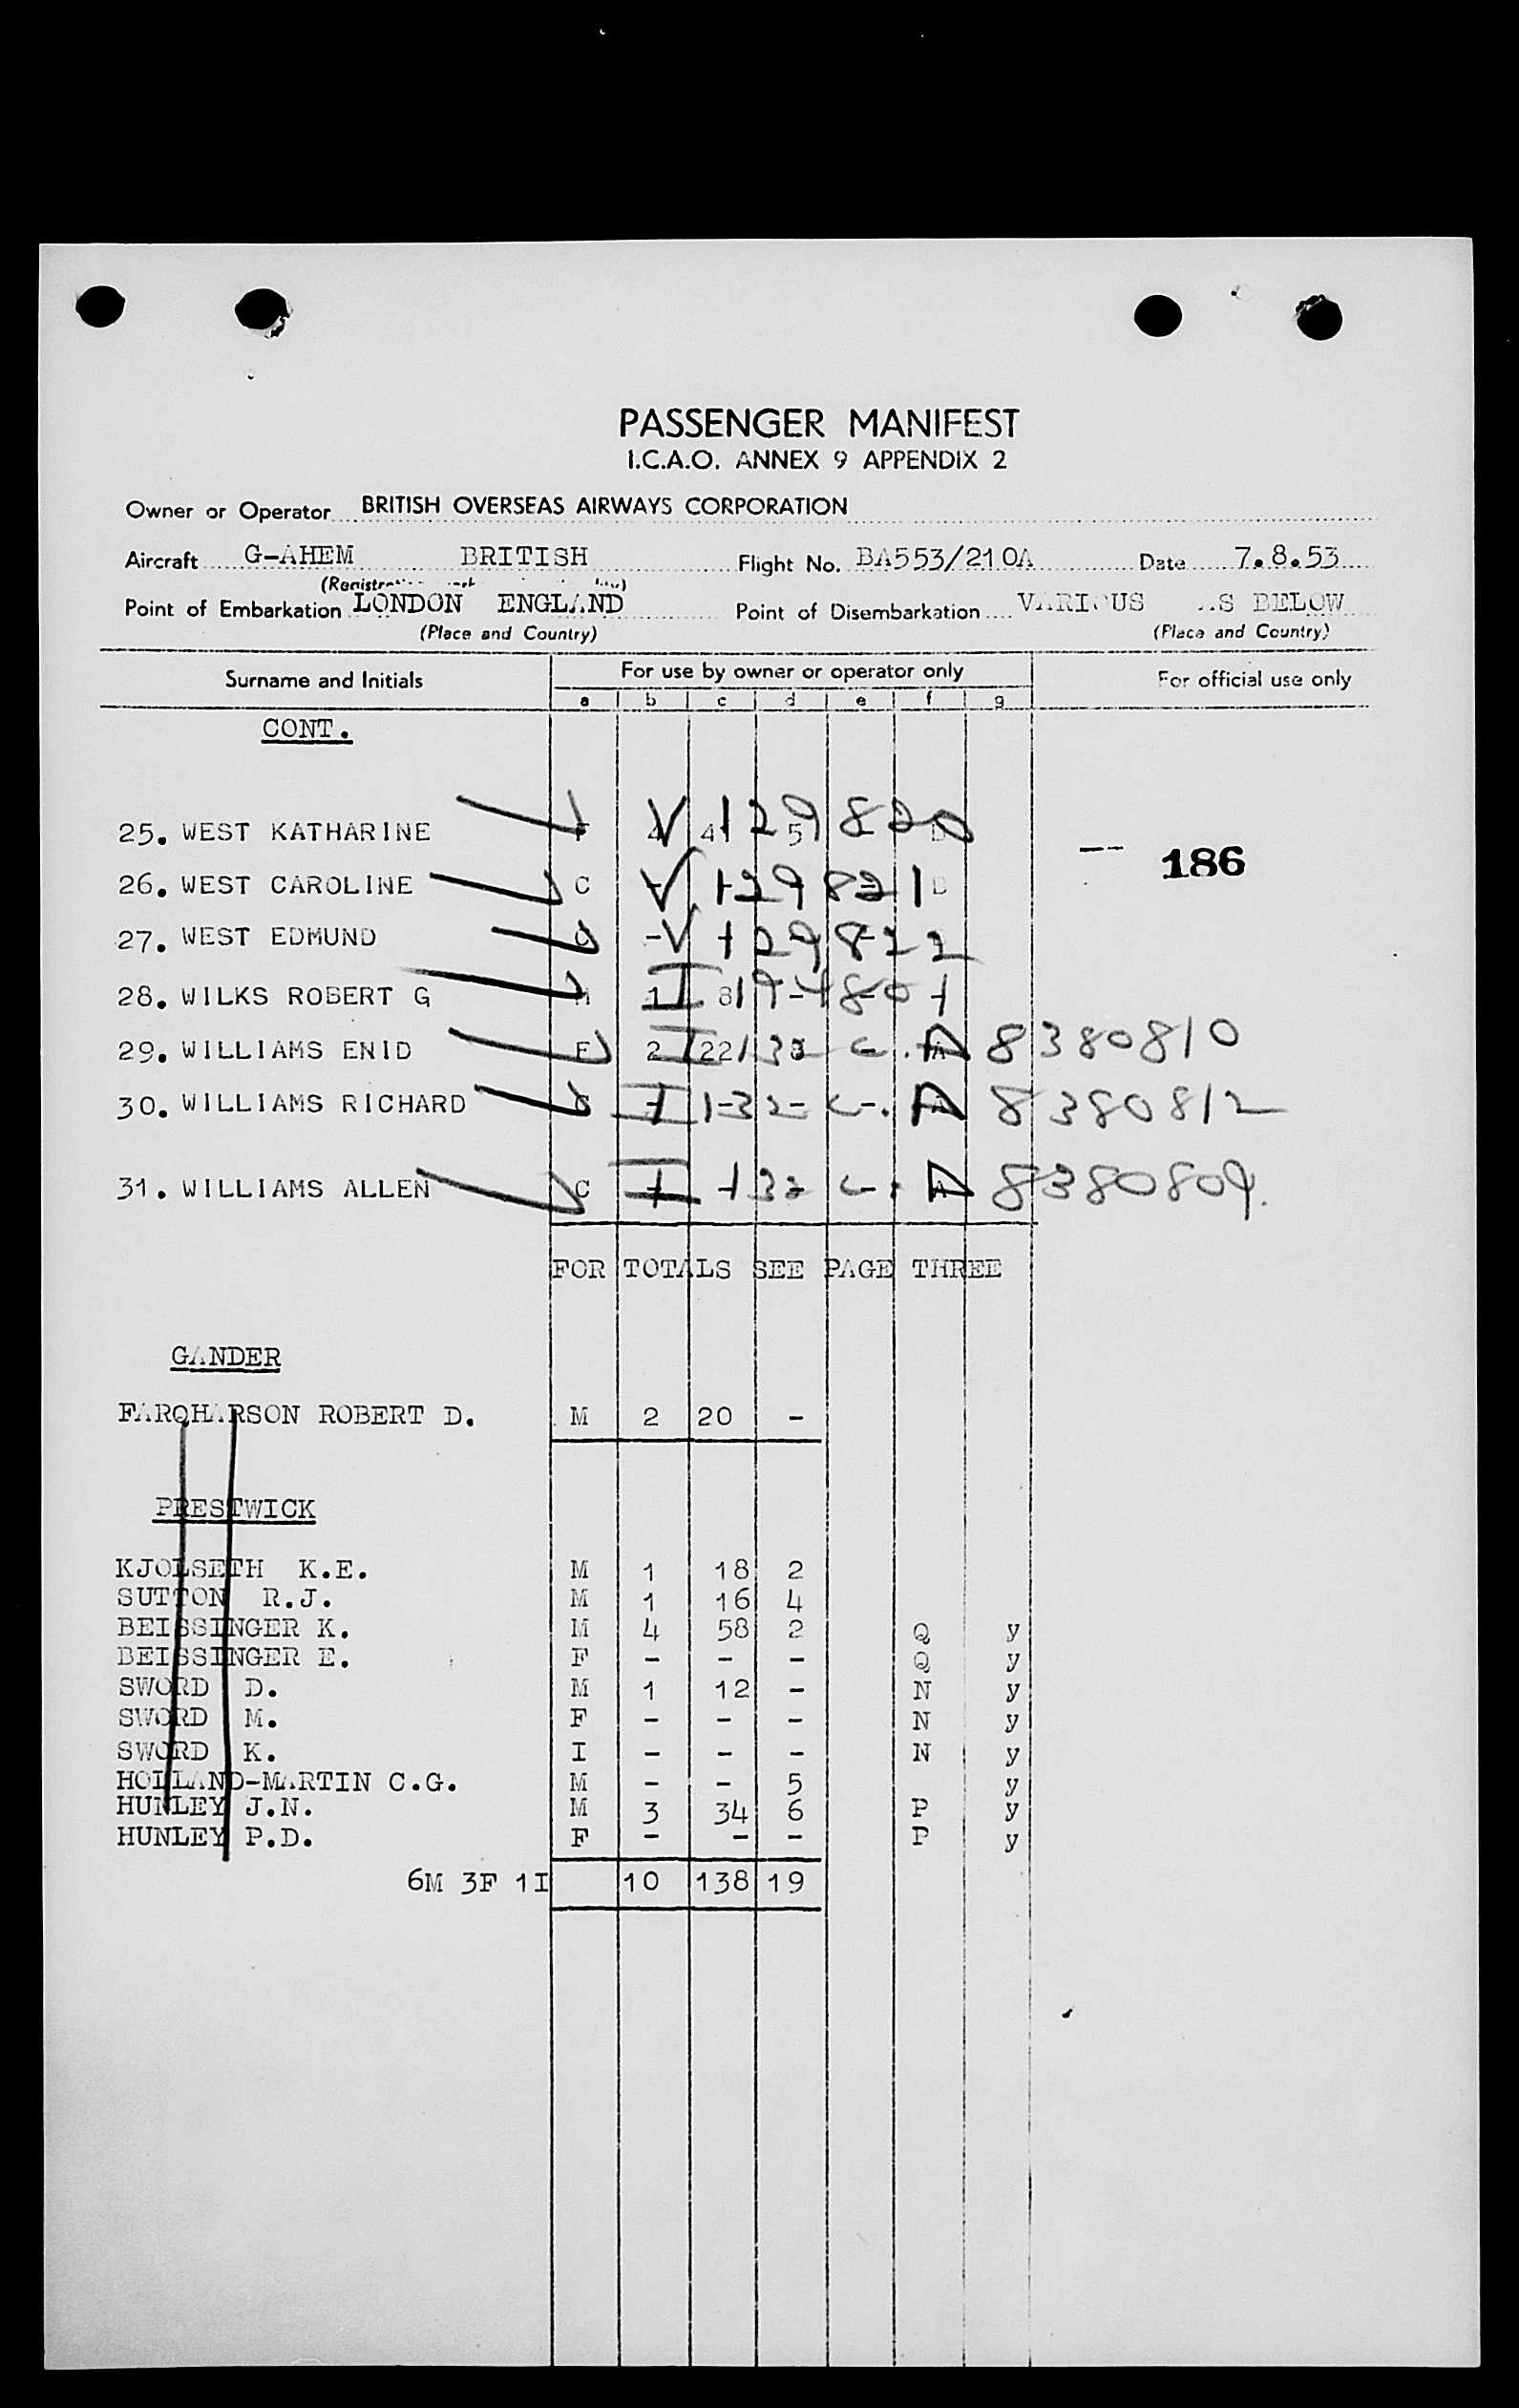 PASSENGER MANIFEST
I.C.A.O. ANNEX 9 APPENDIX 2
Owner or Operator BRITISH OVERSEAS AIRWAYS CORPORATION
Aircraft G-AHEM BRITISH Flight No. BA553/210A Date 7.8.53
Point of Embarkation LONDON ENGLAND Point of Disembarkation VARIOUS AS BELOW
(Place and Country) (Place and Country)
Surname and Initials For use by owner or operator only For official use only
a b c d e f g
CONT.
25. WEST KATHARINE F V 129820
186
26. WEST CAROLINE C V 129821
27. WEST EDMUND V 129822
28. WILKS ROBERT G
29. WILLIAMS ENID F 2 22 A 8380810
30. WILLIAMS RICHARD A 8380812
31. WILLIAMS ALLEN C A 8380809.
FOR TOTALS SEE PAGE THREE
GANDER
FARQHARSON ROBERT D. M 2 20 -
PRESTWICK
KJOLSETH K.E. M 1 18 2
SUTTON R.J. M 1 16 4
BEISSINGER K. M 4 58 2 Q y
BEISSINGER E. F - - - Q y
SWORD D. M 1 12 - N y
SWORD M. F - - - N y
SWORD K. I - - - N y
HOLLAND-MARTIN C.G. M - - 5 y
HUNLEY J.N. M 3 34 6 P y
HUNLEY P.D. F - - - P y
6M 3F 1I 10 138 19